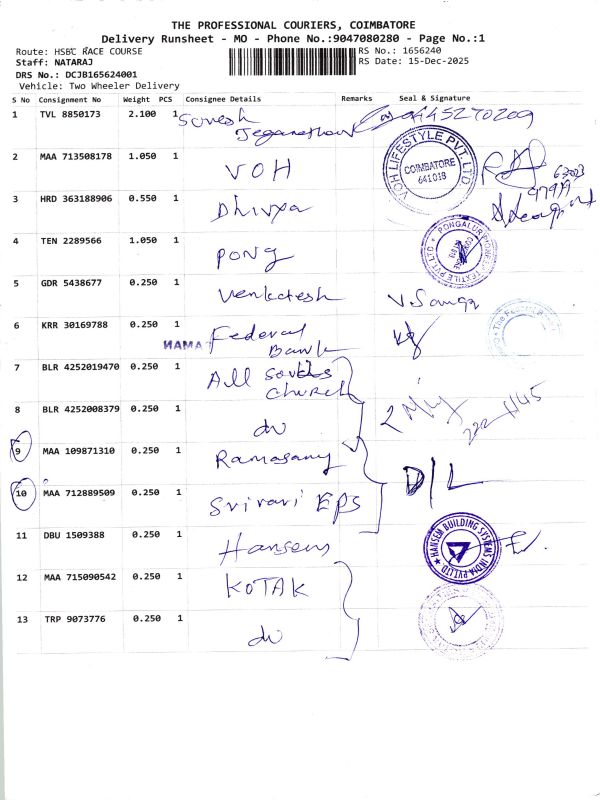 THE PROFESSIONAL COURIERS, COIMBATORE
Delivery Runsheet - MO - Phone No.:9047080280 - Page No.:1
Route: HSBC RACE COURSE RS No.: 1656240
Staff: NATARAJ RS Date: 15-Dec-2025
DRS No.: DCJB165624001
Vehicle: Two Wheeler Delivery
S No Consignment No Weight PCS Consignee Details Remarks Seal & Signature
1 TVL 8850173 2.100 1 9445270209
2 MAA 713508178 1.050 1 VOH
VOH LIFESTYLE PVT. LTD.
COIMBATORE
641018
3 HRD 363188906 0.550 1 Dhivya
4 TEN 2289566 1.050 1 Pong
5 GDR 5438677 0.250 1 Venkatesh
6 KRR 30169788 0.250 1 Federal
Bank
7 BLR 4252019470 0.250 1 All Souls
Church
8 BLR 4252008379 0.250 1 do
9 MAA 109871310 0.250 1 Ramasamy
D/L
10 MAA 712889509 0.250 1 Srivari EPS
11 DBU 1509388 0.250 1 Hansem
HANSEM BUILDING SYSTEMS INDIA PVT LTD
12 MAA 715090542 0.250 1 KOTAK
13 TRP 9073776 0.250 1 do